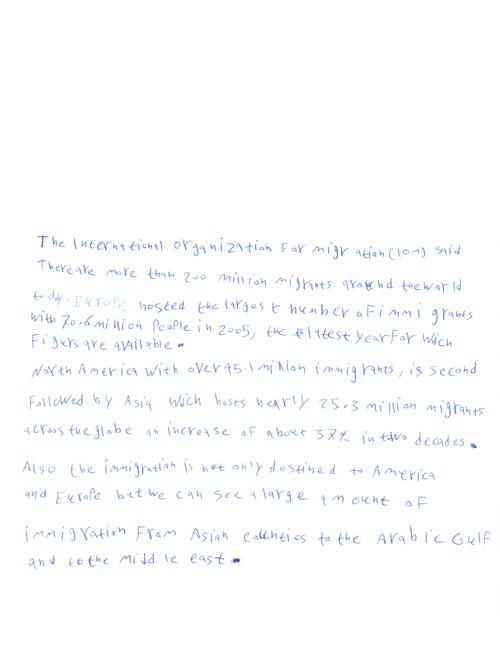 The International organization For migration (IOM) said
There are more than 200 million migrants around the world
today. Europe hosted the largest number of immigrants
with 70.6 million People in 2005, the latest year For wich
Figurs are available.
North America with over 45.1 million immigrants, is second
Followed by Asia wich hosts nearly 25.3 million migrants
across the globe an increase of about 37% in two decades.
Also the immigration is not only destined to America
and Europe but we can see a large amount of
immigration From Asian counties to the Arabic Gulf
and to the Middle east.